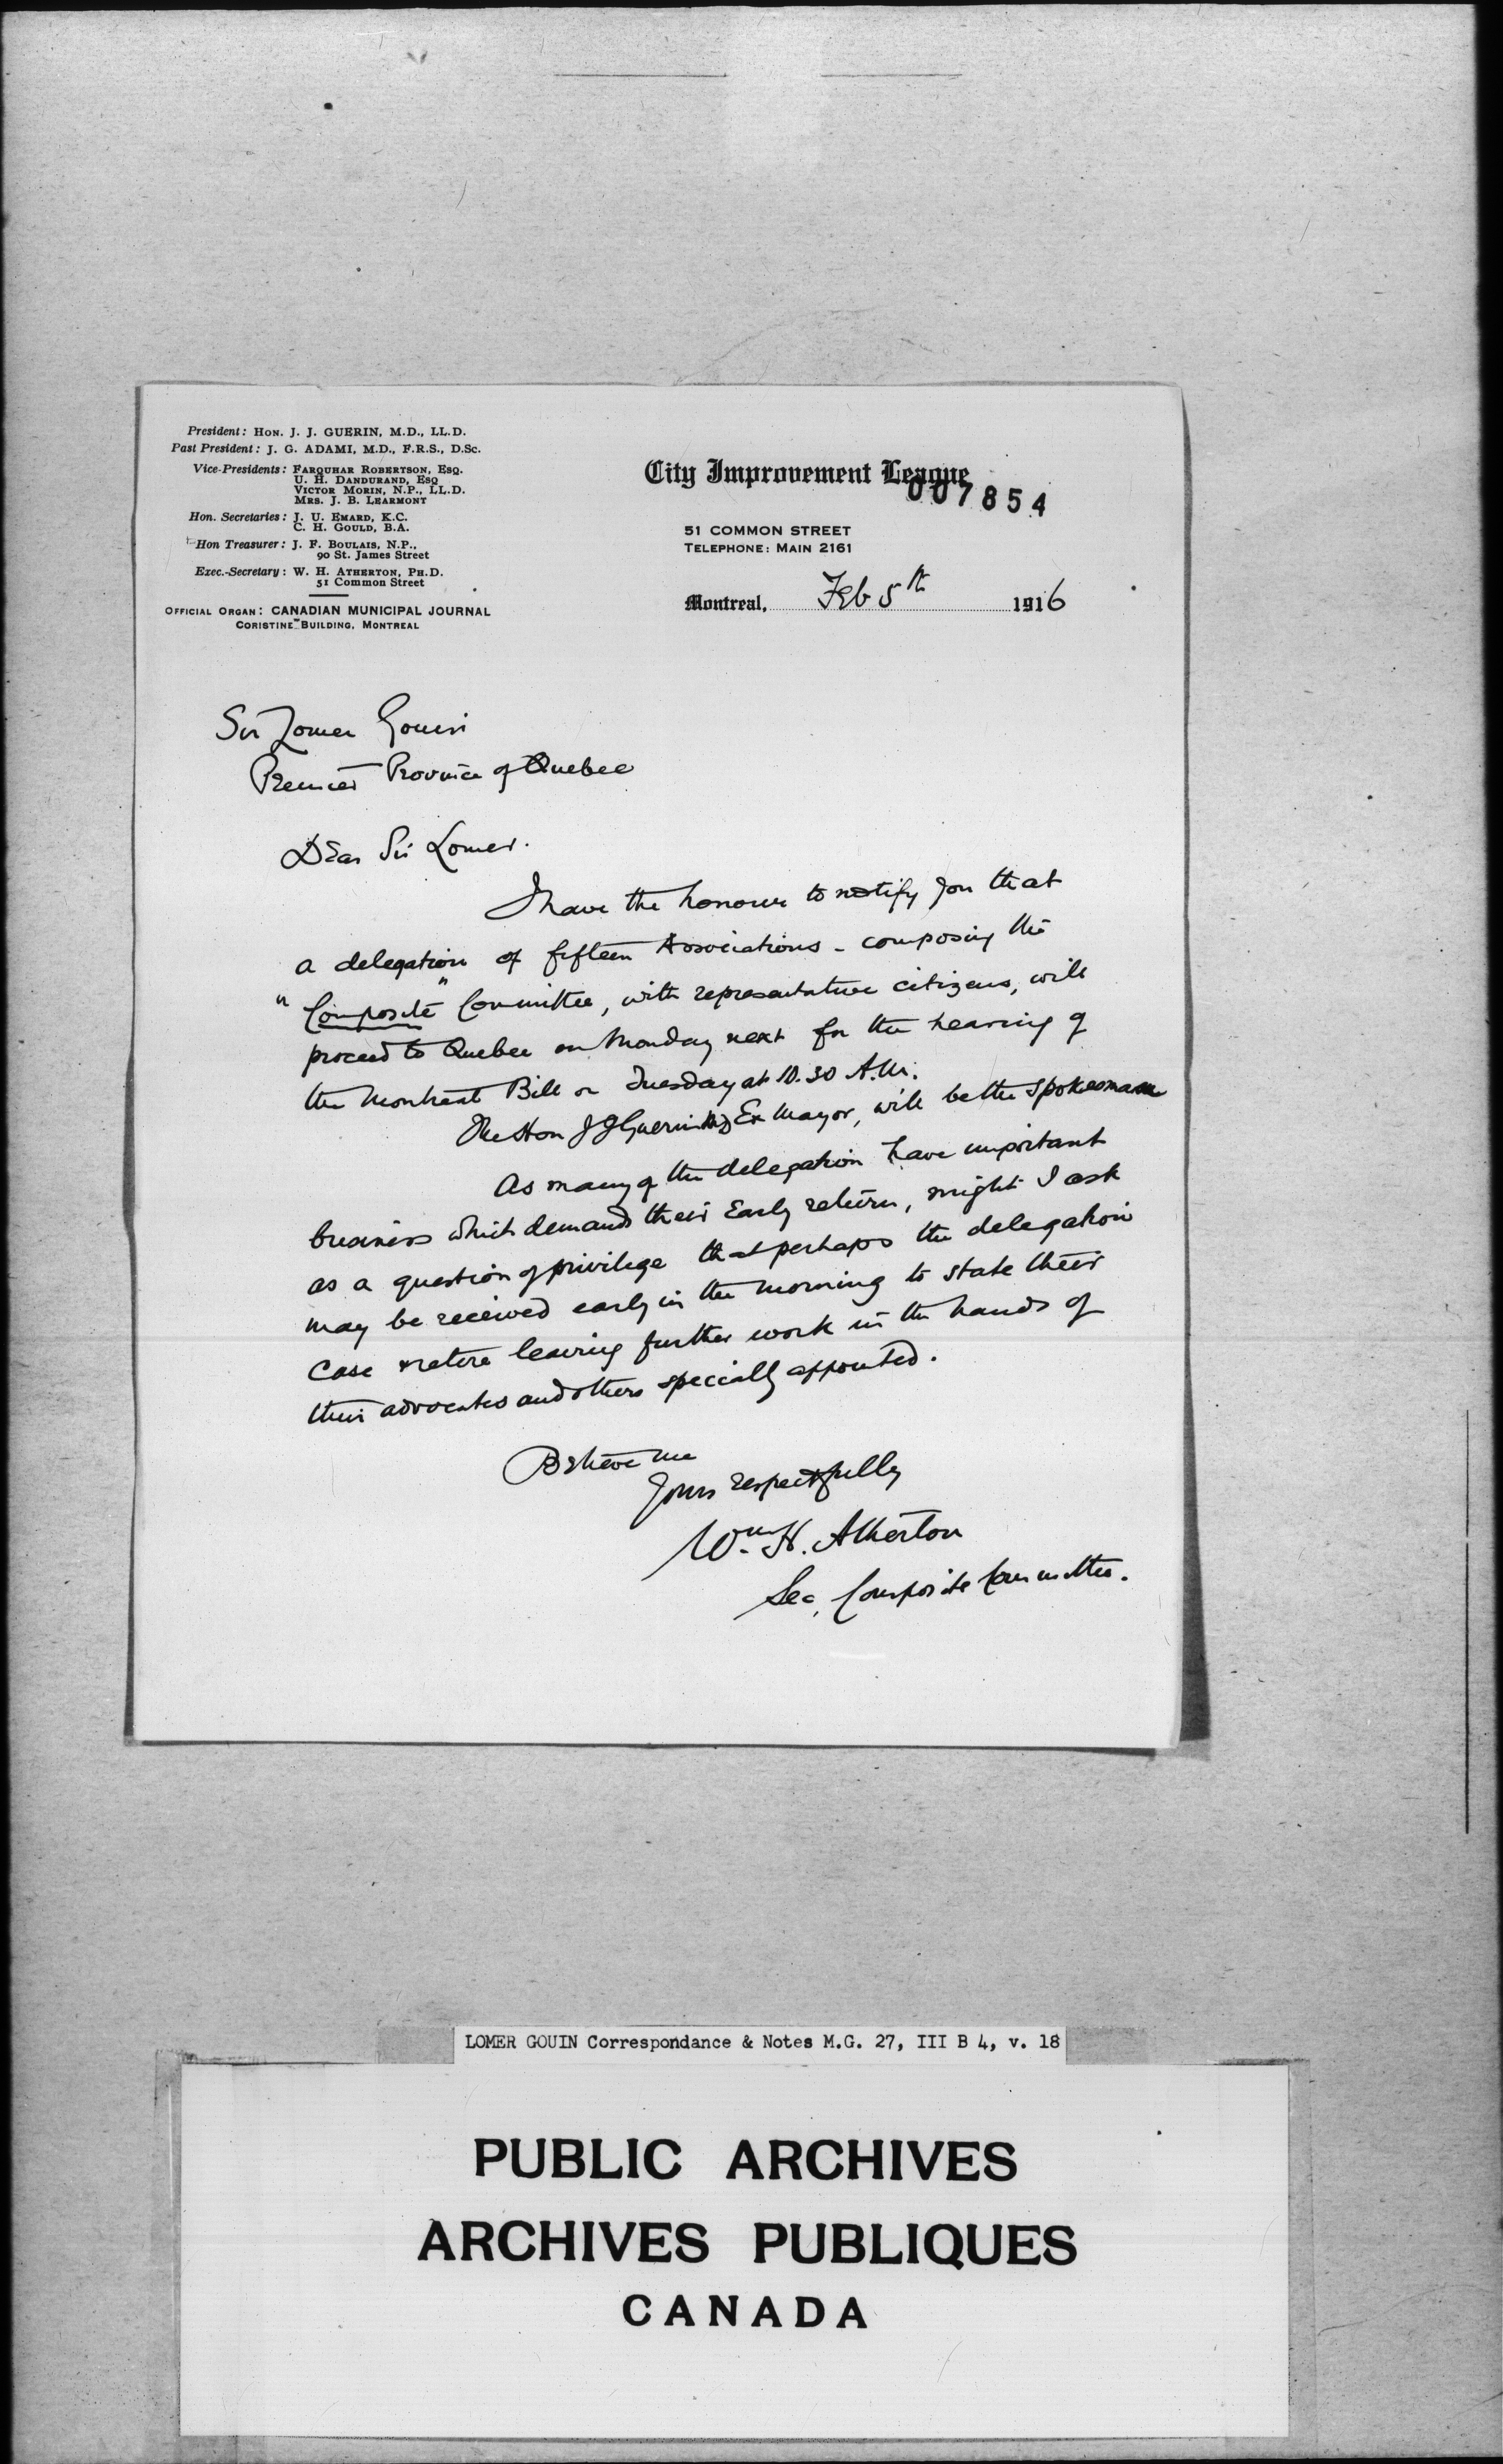 President: HON. J. J. GUERIN, M.D., LL.D.
Past President: J. G. ADAMI, M.D., F.R.S., D.Sc.
Vice-Presidents: FARQUHAR ROBERTSON, ESQ.
U. H. DANDURAND, ESQ
VICTOR MORIN, N.P., LL.D.
MRS. J. B. LEARMONT
Hon. Secretaries: J. U. EMARD, K.C.
C. H. GOULD, B.A.
Hon Treasurer: J. F. BOULAIS, N.P.,
90 St. James Street
Exec.-Secretary: W. H. ATHERTON, PH.D.
51 Common Street
OFFICIAL ORGAN: CANADIAN MUNICIPAL JOURNAL
CORISTINE BUILDING, MONTREAL
City Improvement League
007854
51 COMMON STREET
TELEPHONE: MAIN 2161
Montreal, Feb 5th 1916
Sir Lomer Gouin
Premier Province of Quebec
Dear Sir Lomer.
I have the honour to notify you that
a delegation of fifteen Associations - composing the
"Composite" Committee, with representative citizens, will
proceed to Quebec on Monday next for the hearing of
the Montreal Bill on Tuesday at 10.30 A.M.
The Hon J J Guerin MD Ex Mayor, will be the spokesman
As many of the delegation have important
business which demands their early return, might I ask
as a question of privilege that perhaps the delegation
may be received early in the morning to state their
case leaving further work in the hands of
their advocates and others specially appointed.
Believe me
Yours respectfully
Wm H. Atherton
Sec, Composite Committee.
LOMER GOUIN Correspondance & Notes M.G. 27, III B 4, v. 18
PUBLIC ARCHIVES
ARCHIVES PUBLIQUES
CANADA